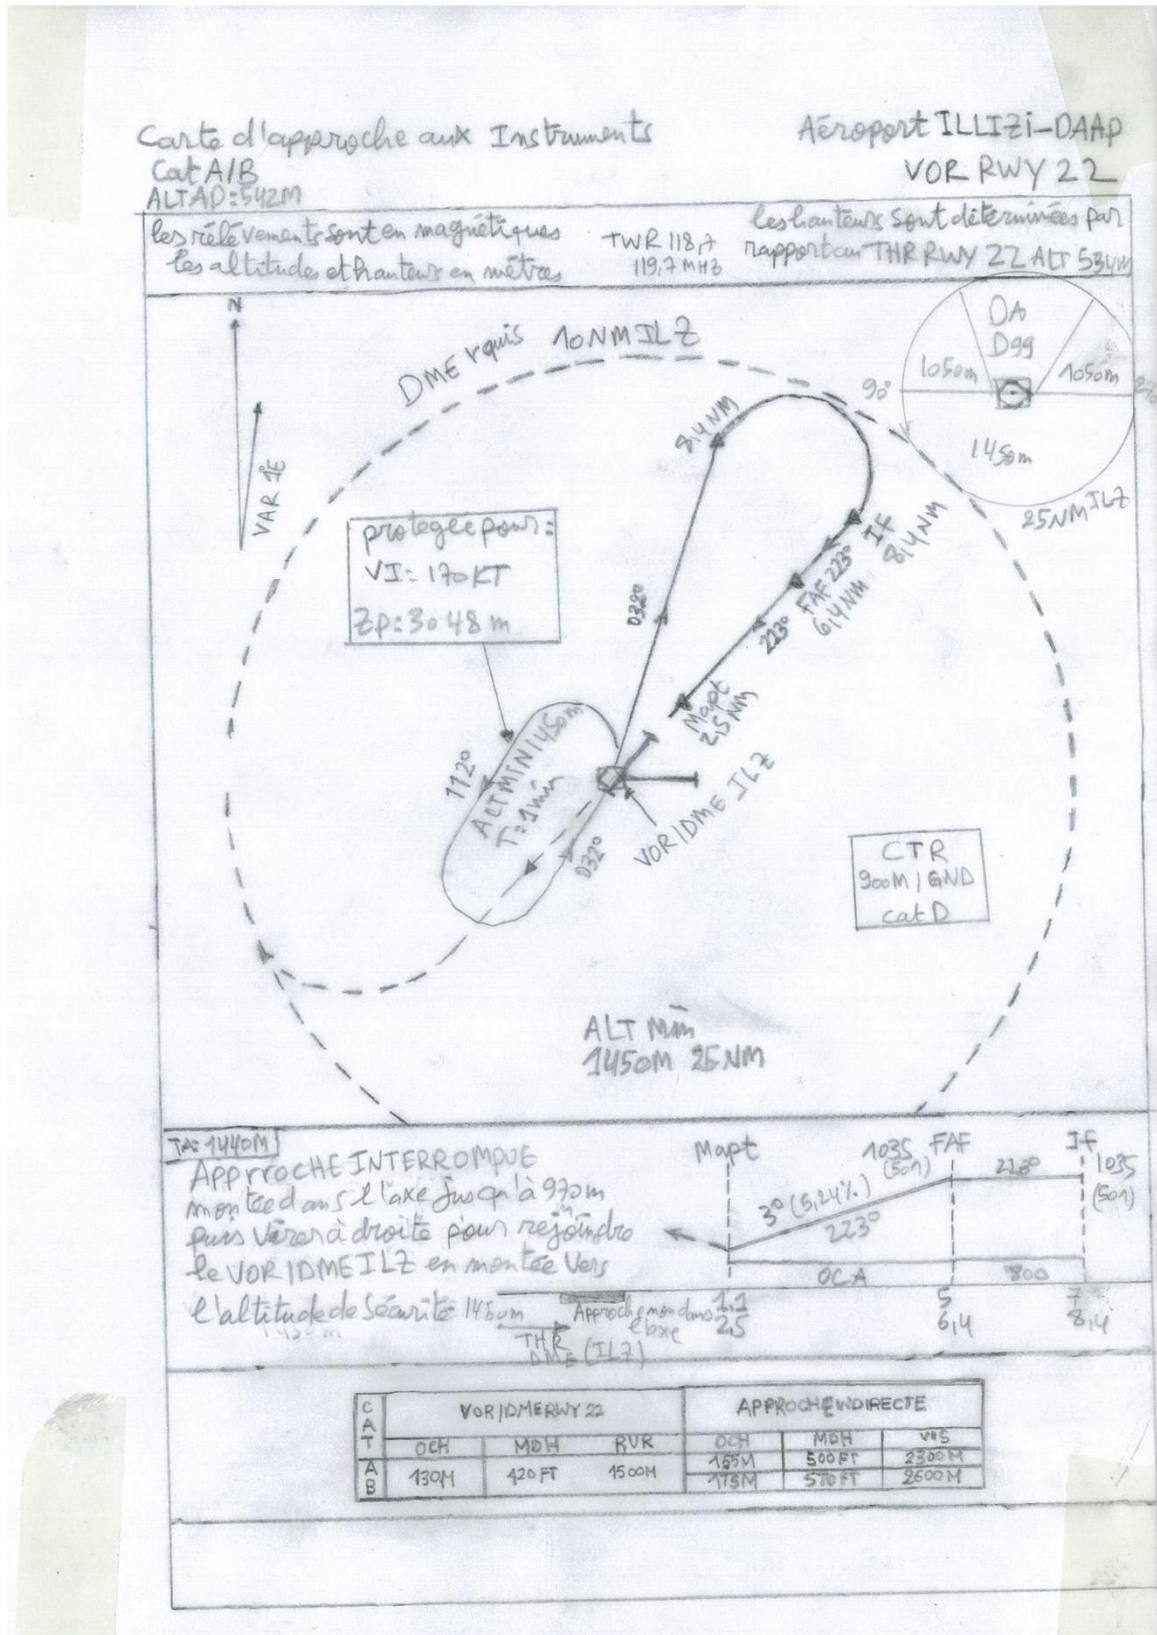 Carte d'approche aux Instruments
Cat A/B
ALT AD: 542M
Aéroport ILLIZi-DAAP
VOR RWY 22
les rélévements sont en magnétiques
les altitudes et hauteurs en mètres
TWR 118,7
119,7 MHz
les hauteurs sont déterminées par
rapport au THR RWY 22 ALT 534m
N
VAR 1°E
DME rquis 10NM ILZ
DA
D99
1050m
1050m
90°
1450m
25NM ILZ
8,4 NM
protegée pour:
VI: 170KT
Zp: 3048 m
D32°
IF
8,4 NM
FAF 223°
6,4 NM
223°
Mapt
2,5 NM
112°
ALT MIN 1450m
T: 1min
D32°
VOR/DME ILZ
CTR
900M/GND
cat D
ALT Min
1450M 25NM
TA: 1440M
APPrROCHE INTERROMPUE
montée dans l'axe jusqu'à 970m
puis Virer à droite pour rejoindre
le VOR/DME ILZ en montée Vers
l'altitude de Sécurité 1450m
Mapt
1035
(501)
FAF
If
1035
(501)
3° (5,24%)
223°
OCA
800
Approche non dans
l'axe
THR
DME (ILZ)
1,1
2,5
5
6,4
7
8,4
CAT
VOR/DME RWY 22
APPROCHE INDIRECTE
OCH MDH RVR OCH MDH VIS
A 130M 420 FT 1500M 155M 500 FT 2300M
B 175M 570 FT 2600M